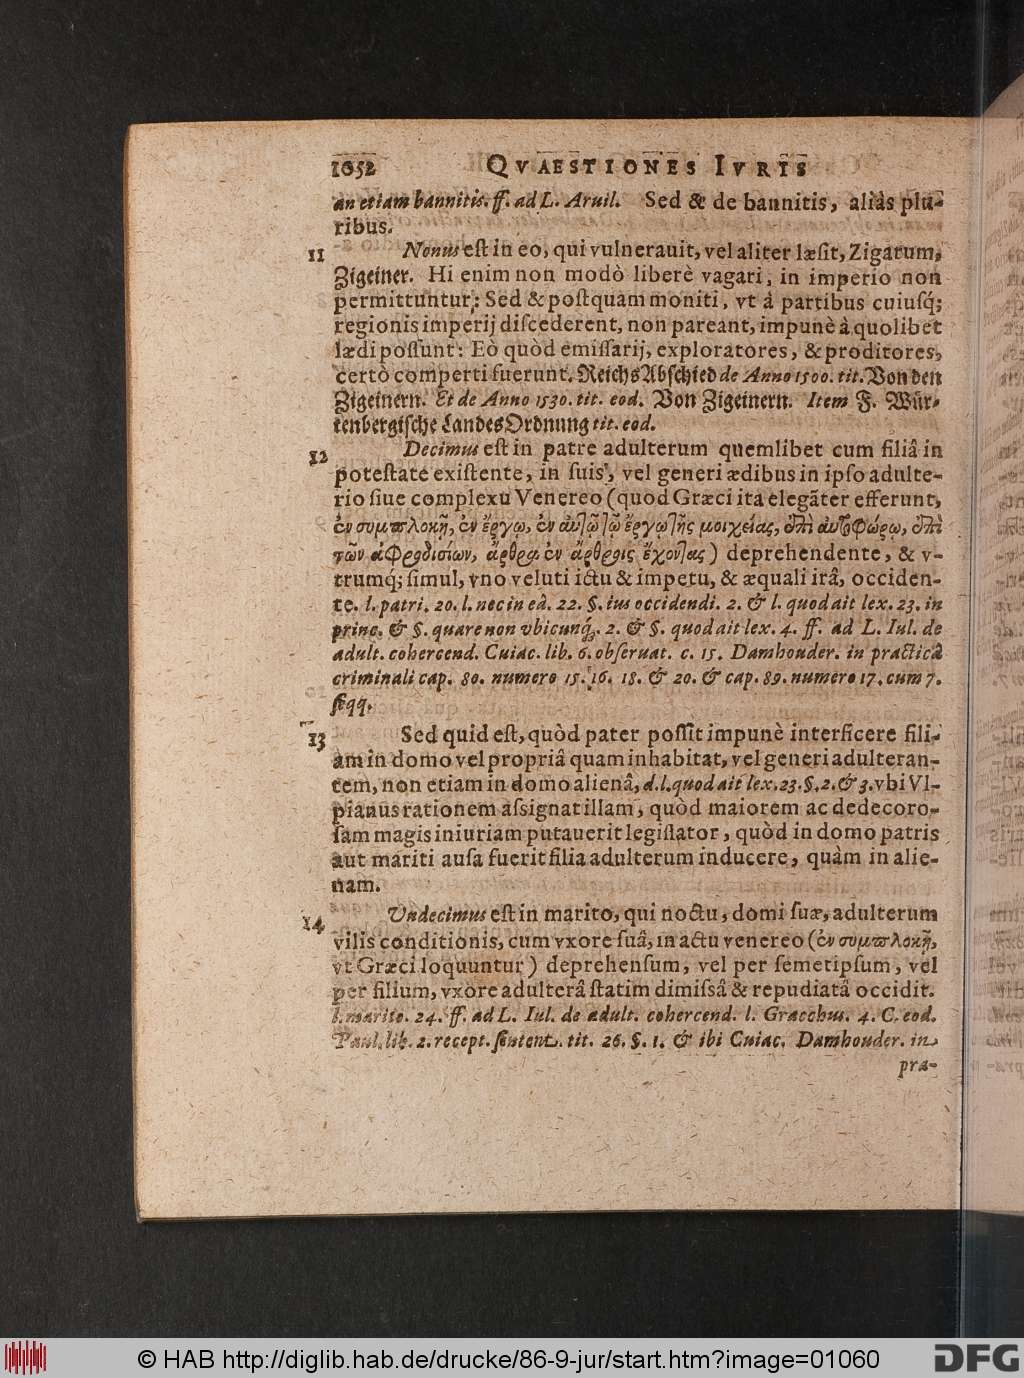 1052 QVAESTIONES IVRIS
an etiam bannitis. ff. ad L. Aruil. Sed & de bannitis, aliàs plu-
ribus.
11 Nonus eſt in eo, qui vulnerauit, vel aliter læſit, Zigarum,
Zigeiner. Hi enim non modò liberè vagari, in imperio non
permittuntur: Sed & poſtquam moniti, vt à partibus cuiuſq́;
regionis imperij diſcederent, non pareant, impunè à quolibet
lædi poſſunt: Eò quòd emiſſarij, exploratores, & proditores,
certò comperti fuerunt. ReichsAbſchied de Anno 1500. tit. Von den
Zigeinern. Et de Anno 1530. tit. eod. Von Zigeinern. Item F. Wür-
tenbergiſche LandesOrdnung tit. eod.
12 Decimus eſt in patre adulterum quemlibet cum filiâ in
poteſtate exiſtente, in ſuis, vel generi ædibus in ipſo adulte-
rio ſiue complexu Venereo (quod Græci ita elegãter efferunt,
ἐν συμπλοκῇ, ἐν ἔργῳ, ἐν αὐτῷ τῷ ἔργῳ τῆς μοιχείας, ἐπὶ αὐτοφώρῳ, ἐπὶ
τῶν ἀφροδισίων, ἄρθρα ἐν ἄρθροις ἔχοντας) deprehendente, & v-
trumq́; ſimul, vno veluti ictu & impetu, & æquali irâ, occiden-
te. l. patri. 20. l. nec in eâ. 22. §. ius occidendi. 2. & l. quod ait lex. 23. in
princ. & §. quare non vbicunq́. 2. & §. quod ait lex. 4. ff. ad L. Iul. de
adult. cohercend. Cuiac. lib. 6. obſeruat. c. 15. Damhouder. in practicâ
criminali cap. 80. numero 15. 16. 18. & 20. & cap. 89. numero 17. cum 7.
ſeqq.
13 Sed quid eſt, quòd pater poſſit impunè interficere fili-
am in domo vel propriâ quam inhabitat, vel generi adulteran-
tem, non etiam in domo alienâ, d. l. quod ait lex. 23. §. 2. & 3. vbi Vl-
pianus rationem aſsignat illam, quòd maiorem ac dedecoro-
ſam magis iniuriam putauerit legiſlator, quòd in domo patris
aut mariti auſa fuerit filia adulterum inducere, quàm in alie-
nam.
14 Undecimus eſt in marito, qui noctu, domi ſuæ, adulterum
vilis conditionis, cum vxore ſuâ, in actu venereo (ἐν συμπλοκῇ,
vt Græci loquuntur) deprehenſum, vel per ſemetipſum, vel
per filium, vxore adulterâ ſtatim dimiſsâ & repudiatâ occidit.
l. marito. 24. ff. ad L. Iul. de adult. cohercend. l. Gracchus. 4. C. eod.
Paul. lib. 2. recept. ſentent. tit. 26. §. 1. & ibi Cuiac. Damhouder. in
pra-
© HAB http://diglib.hab.de/drucke/86-9-jur/start.htm?image=01060
DFG